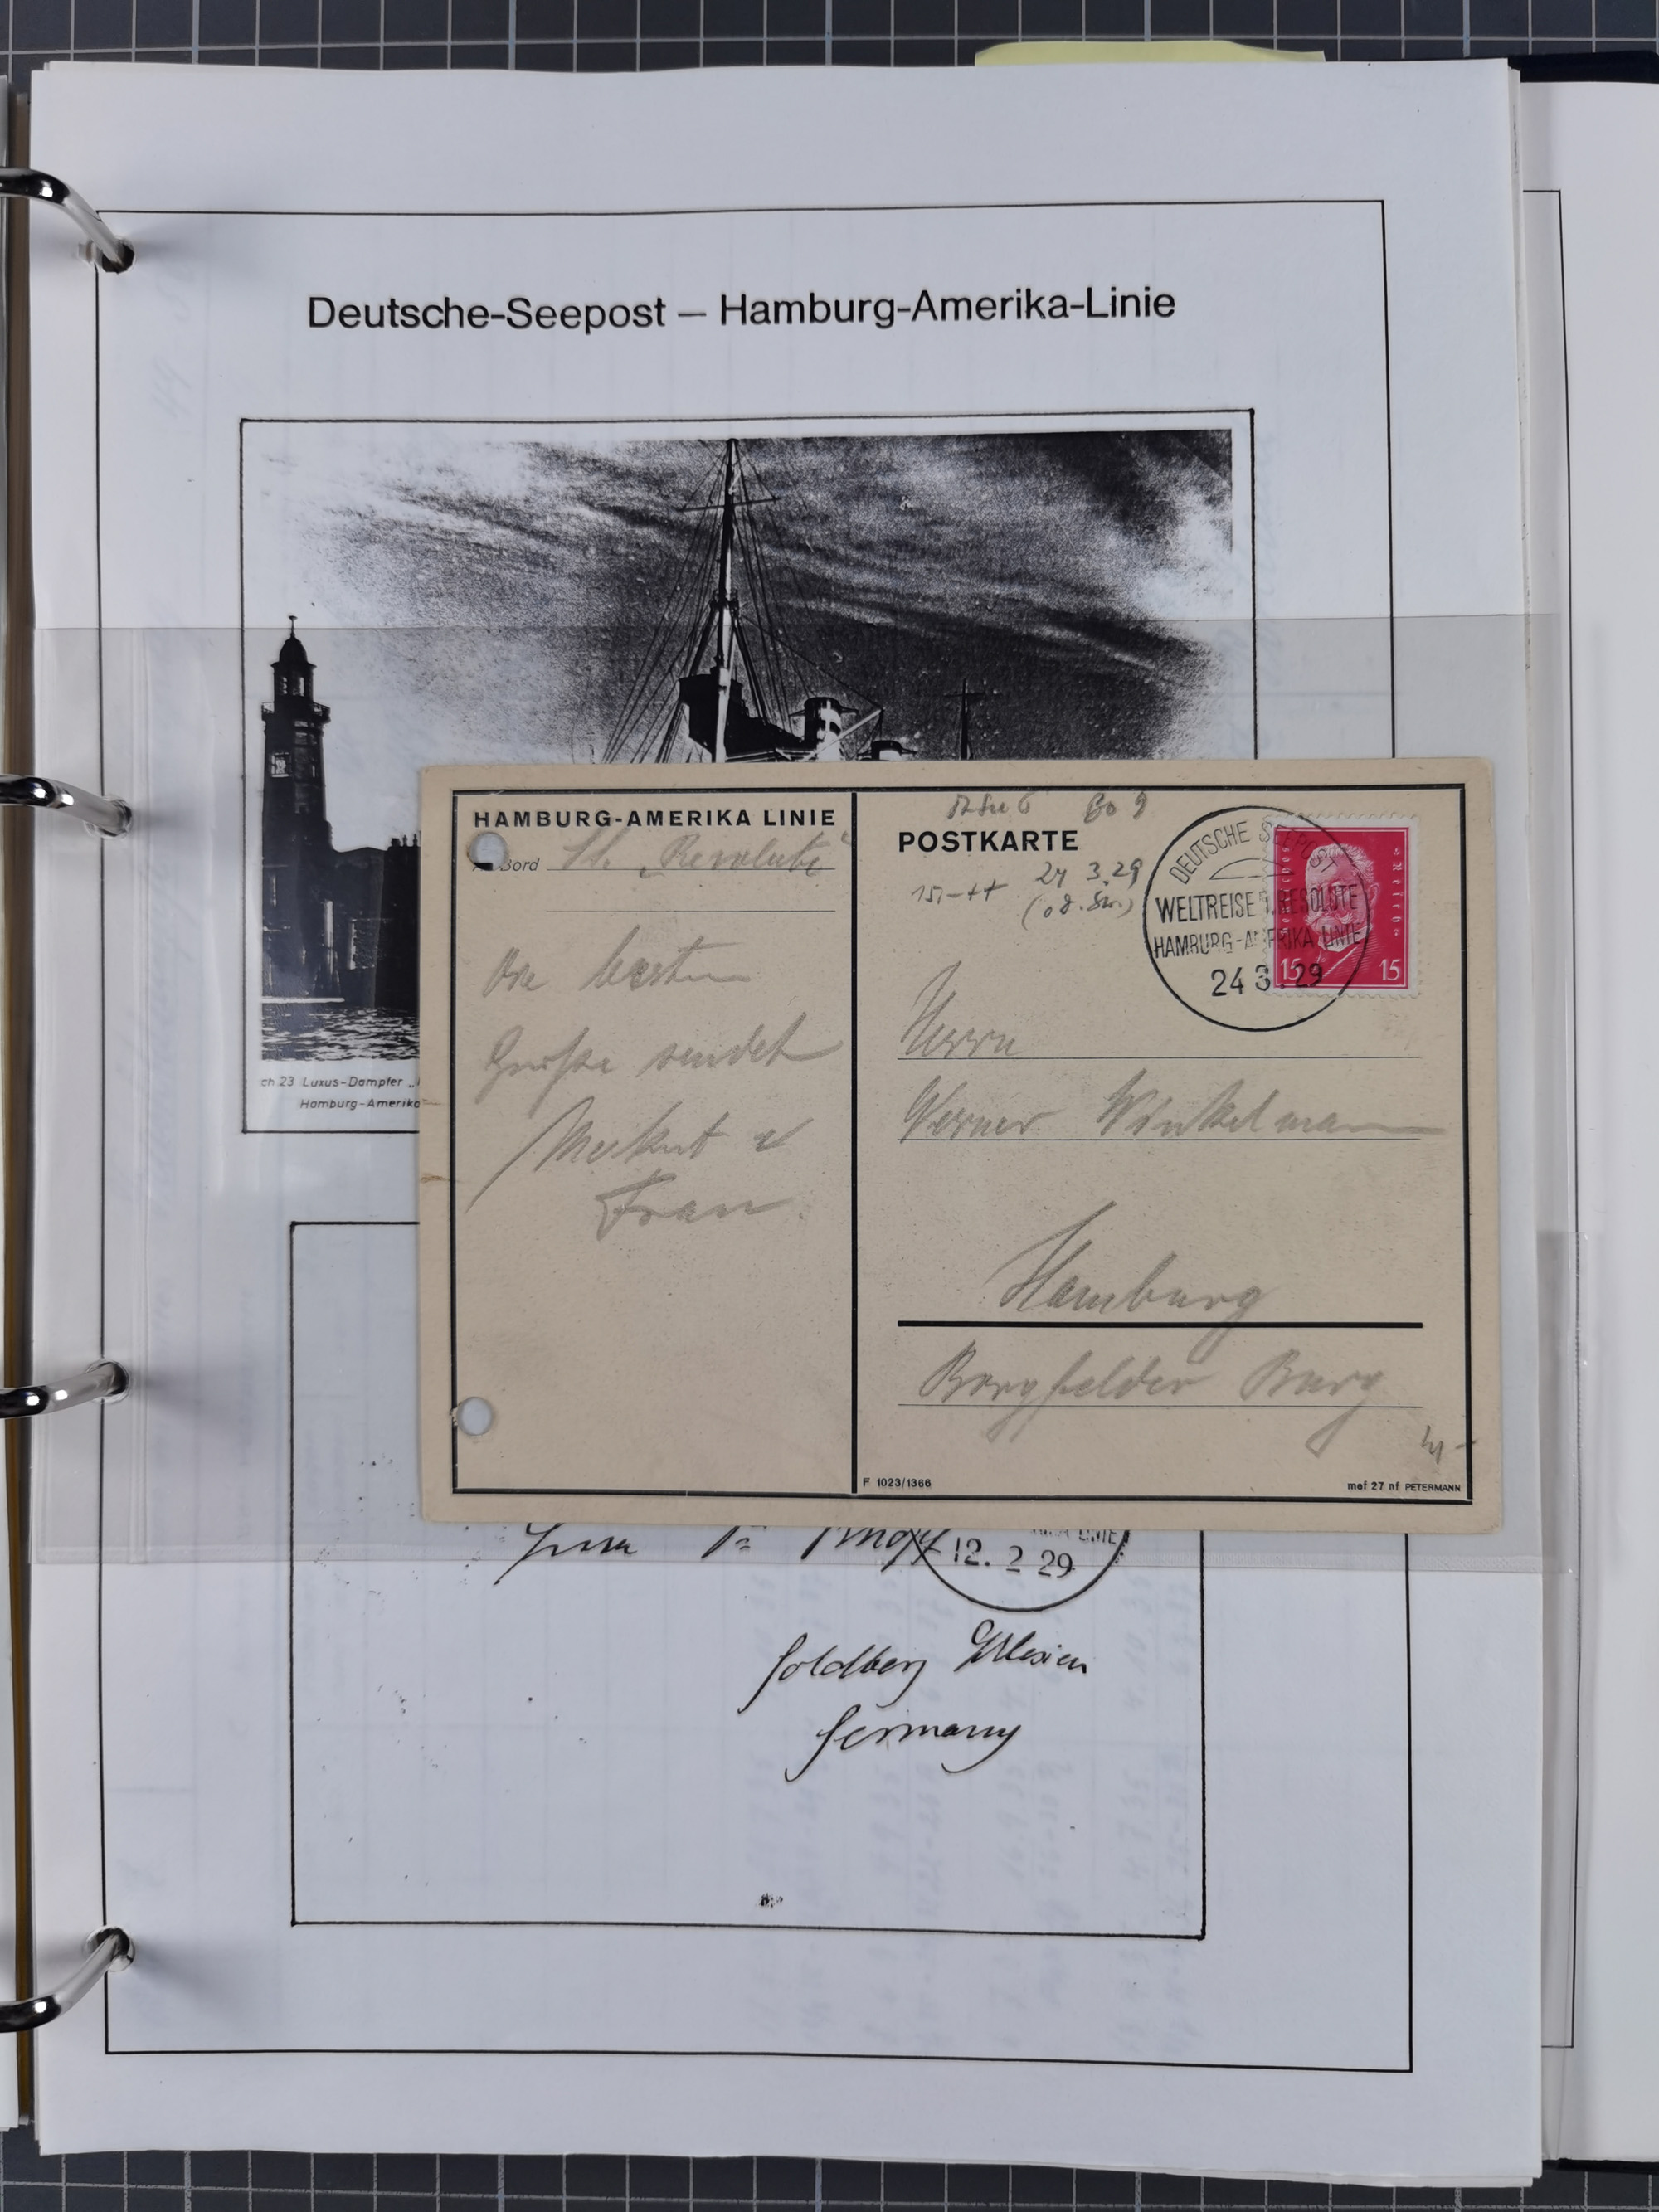 Deutsche-Seepost — Hamburg-Amerika-Linie
ch 23 Luxus-Dampfer „
Hamburg-Amerika
HAMBURG-AMERIKA LINIE
Bord St. „Resolute"
Die besten
Grüße sendet
u
Frau.
Bo 9
POSTKARTE
24 3.29
15,-++
DEUTSCHE SEEPOST
WELTREISE D. RESOLUTE
HAMBURG-AMERIKA LINIE
24 3. 29
Deutsches Reich
15 15
Herrn
Werner Winkelmann
Hamburg
Borgfelder Burg
F 1023/1366
mef 27 nf PETERMANN
LINIE
12. 2 29
Goldberg Schlesien
Germany